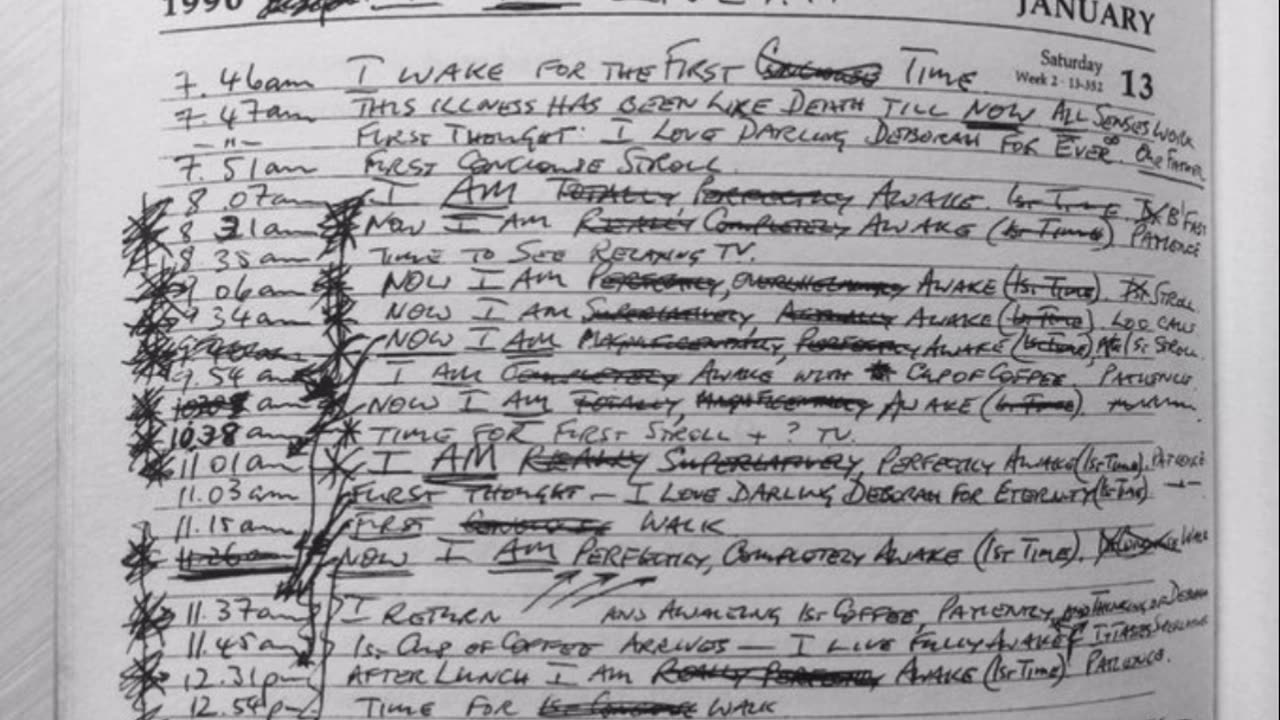 1990 JANUARY
Saturday
Week 2 · 13-352 13
7.46am I WAKE FOR THE FIRST TIME.
7.47am THIS ILLNESS HAS BEEN LIKE DEATH TILL NOW ALL SENSES WORK
– " – FIRST THOUGHT: I LOVE DARLING DEBORAH FOR EVER.
7.51am FIRST CONCIOUSE STROLL.
8.07am I AM TOTALLY PERFECTLY AWAKE. 1ST TIME B'FAST
8 31am NOW I AM REALLY COMPLETELY AWAKE (1ST TIME) PATIENCE
8 35am TIME TO SEE RELAXING TV.
9 06am NOW I AM PERFECTLY, OVERWHELMINGLY AWAKE (1ST TIME). STROLL
9 34am NOW I AM SUPERLATIVELY ACTUALLY AWAKE (1ST TIME).
NOW I AM MAGNIFICENTLY, PERFECTLY AWAKE (1ST TIME), 1ST STROLL.
9.54 am I AM COMPLETELY AWAKE WITH CUP OF COFFEE. PATIENCE
am NOW I AM TOTALLY, MAGNIFICENTLY AWAKE (1ST TIME).
10 38 am TIME FOR FIRST STROLL + ? TV.
11 01am I AM REALLY SUPERLATIVELY, PERFECTLY AWAKE (1ST TIME). PATIENCE
11.03am FIRST THOUGHT – I LOVE DARLING DEBORAH FOR ETERNITY (1ST TIME) – " –
11.15am FIRST WALK
11.26am NOW I AM PERFECTLY, COMPLETELY AWAKE (1ST TIME).
11.37am I RETURN AND AWAITING 1ST COFFEE, PATIENTLY, AND THINKING OF DEBORAH
11.45am 1ST CUP OF COFFEE ARRIVES — I LIVE FULLY AWAKE
12.31pm AFTER LUNCH I AM REALLY PERFECTLY AWAKE (1ST TIME) PATIENCE.
12.54pm TIME FOR WALK